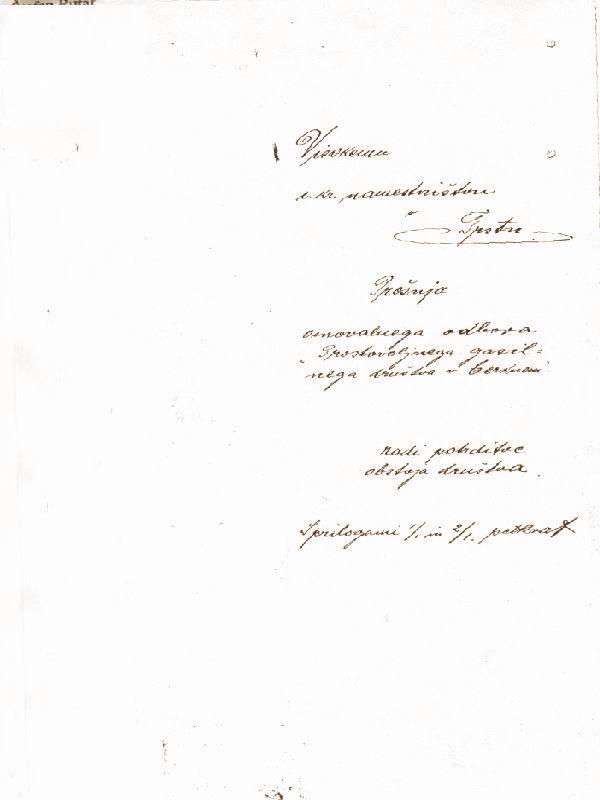 Visokemu
c. kr. namestništvu
Trstu.
Prošnja
osnovalnega odbora
"Prostovoljnega gasil=
nega društva v Cerknem"
radi potrditve
obstoja društva.
S prilogami 1/. in 2/1. petkrat